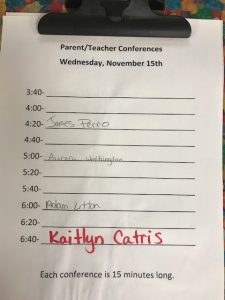 Parent/Teacher Conferences
Wednesday, November 15th
3:40-
4:00-
4:20- James Perro
4:40-
5:00-
5:20-
5:40-
6:00- Adam
6:20-
6:40- Kaitlyn Catris
Each conference is 15 minutes long.